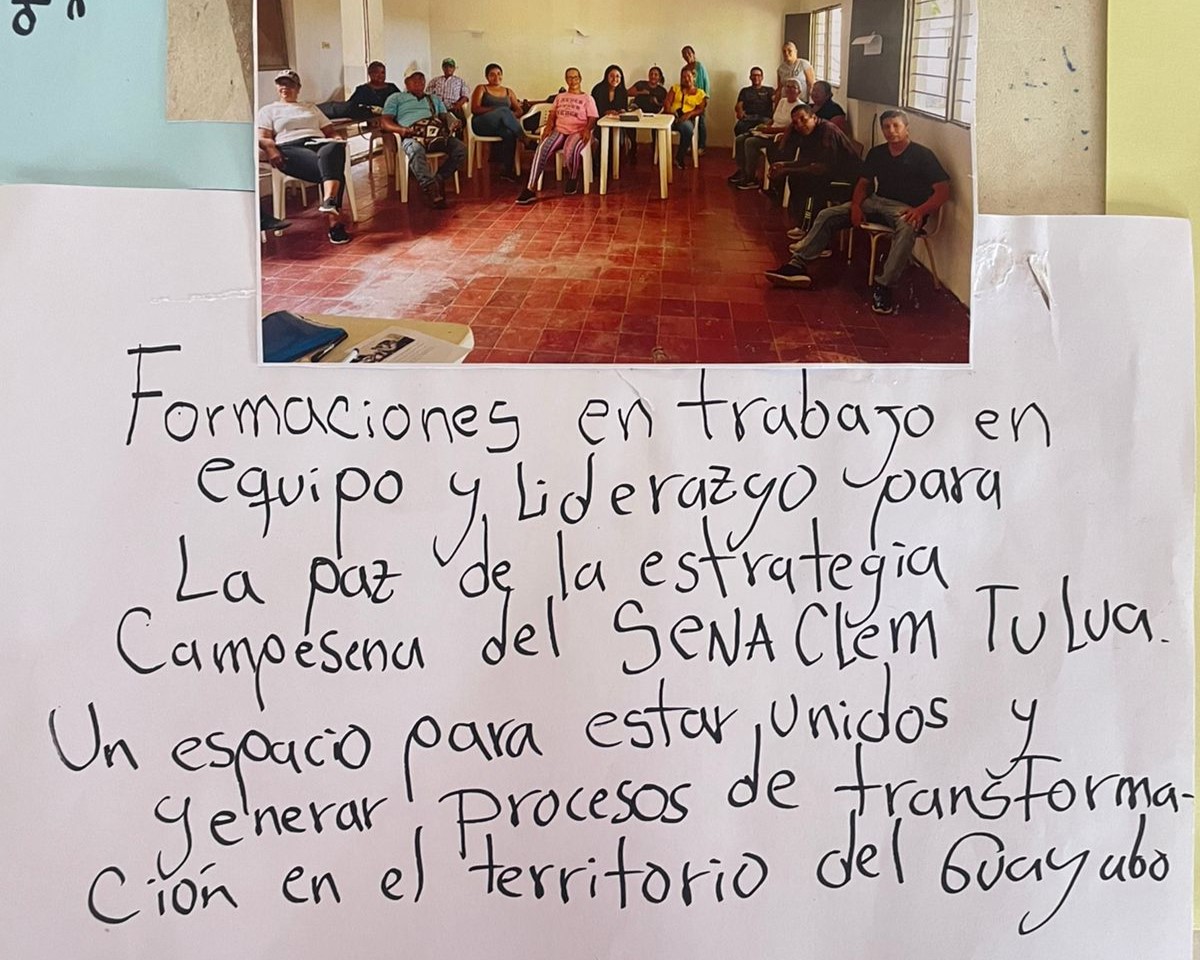 Formaciones en trabajo en
equipo y Liderazgo para
La paz de la estrategia
Campesena del SENA Clem Tulua.
Un espacio para estar unidos y
generar procesos de transforma-
ción en el territorio del Guayabo